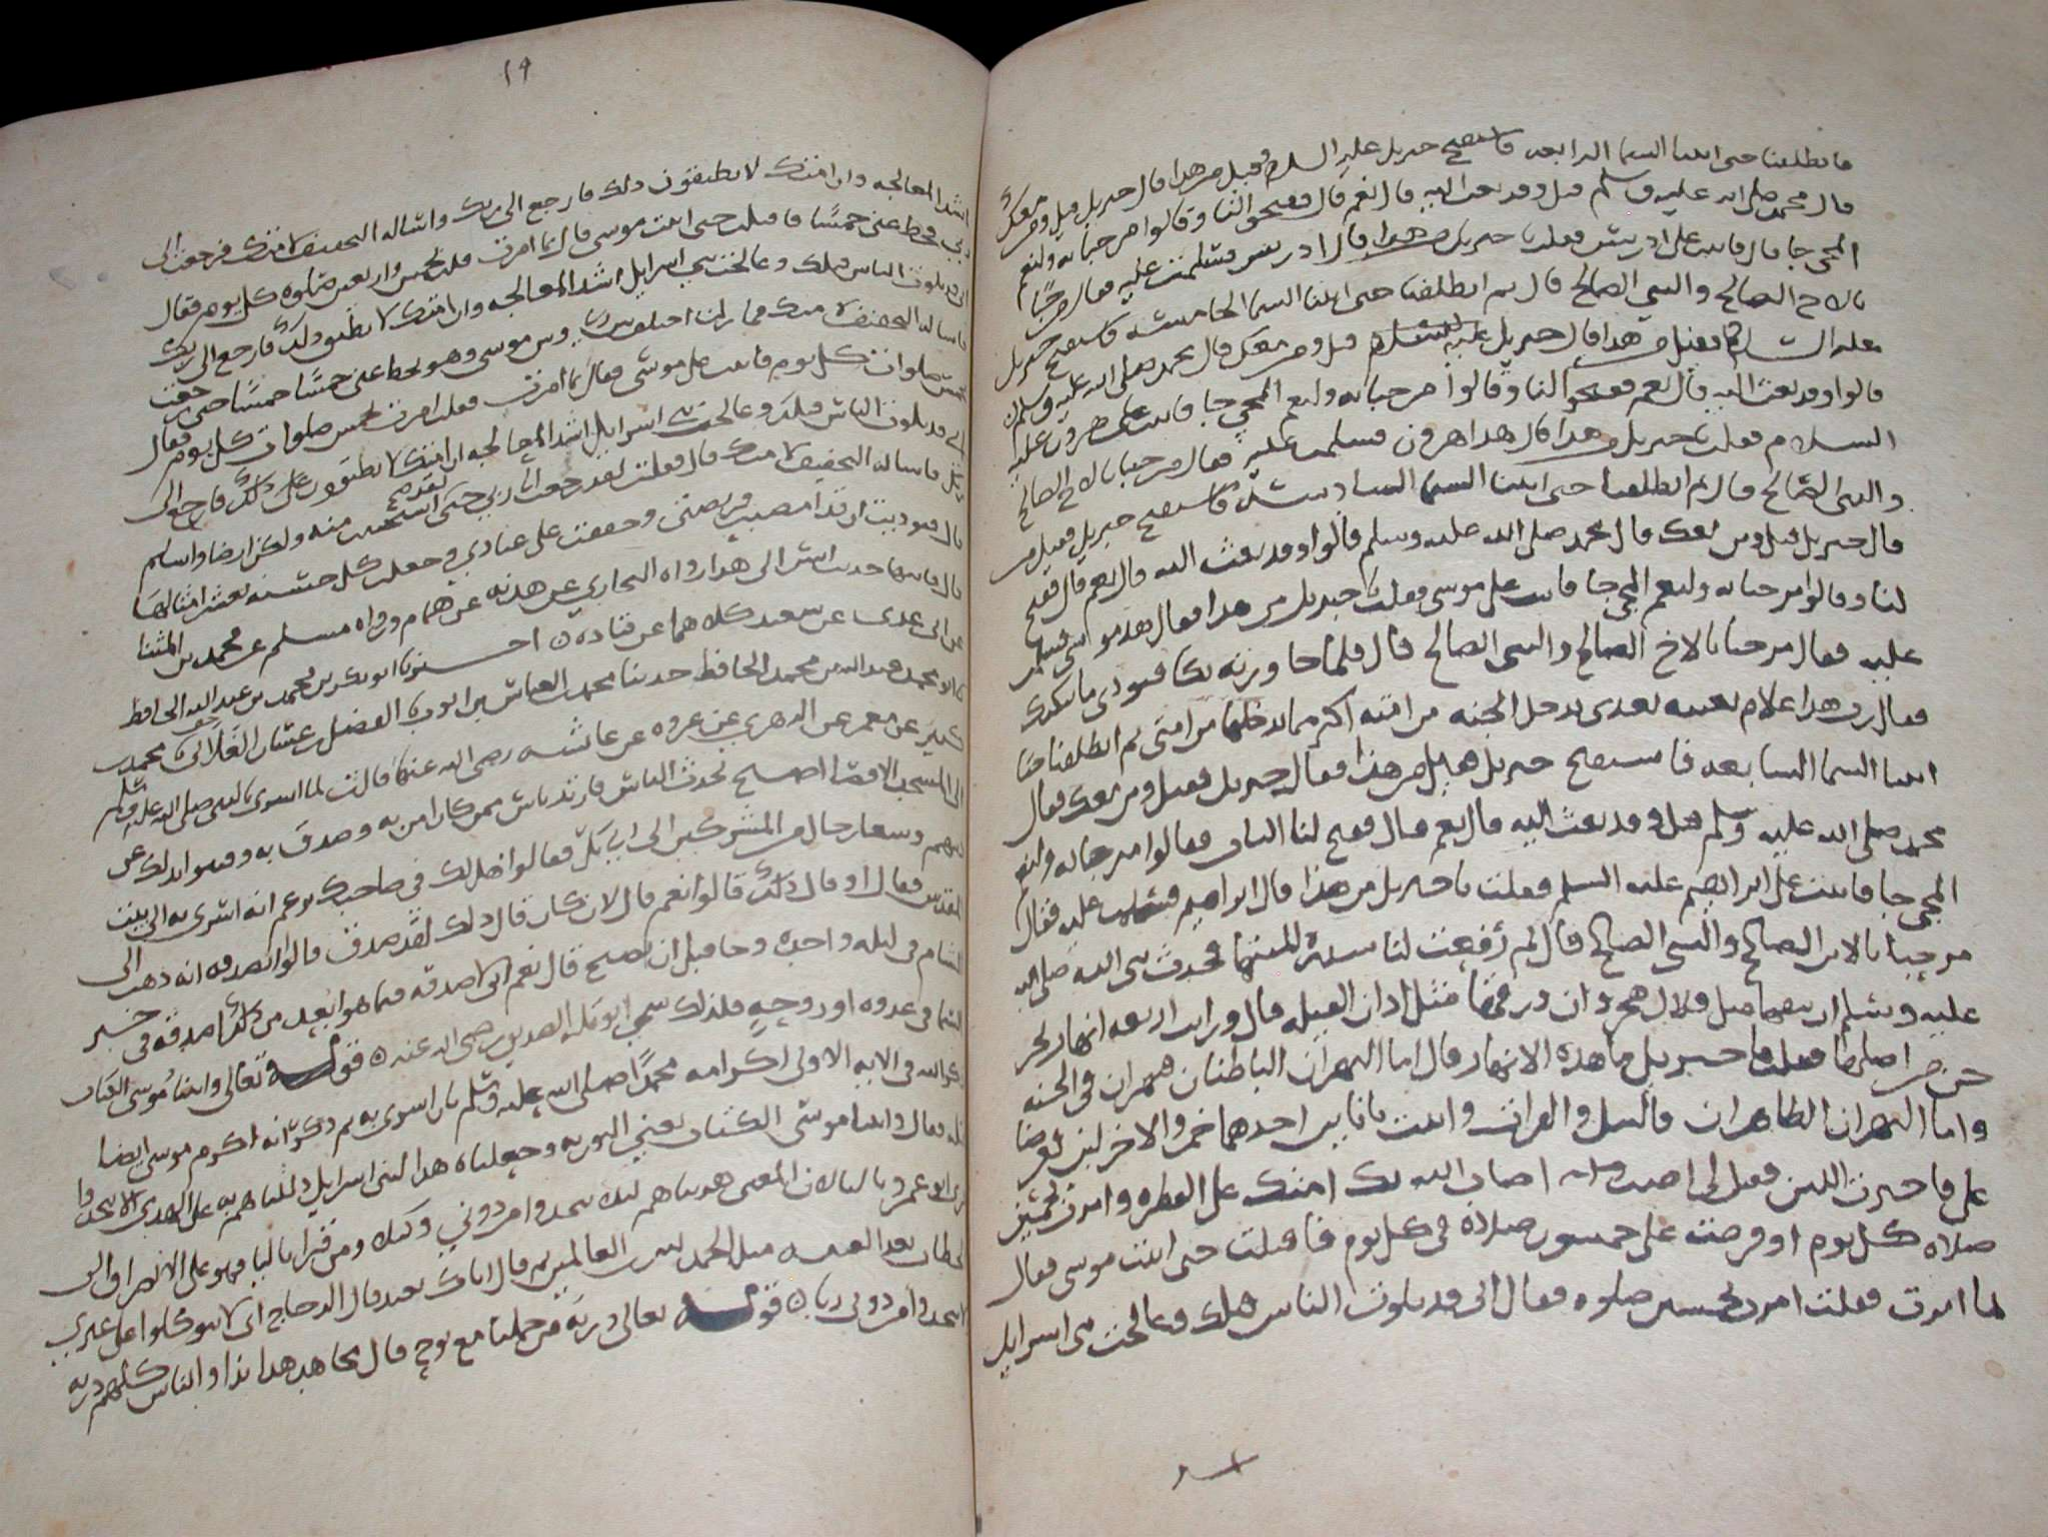 فانطلقنا حتى اتينا السما الرابعه فاستفتح جبريل عليه السلام فقيل من هذا قال جبريل قيل ومن معك
قال محمد صلى الله عليه وسلم قيل وقد بعث اليه قال نعم قال ففتحوا لنا وقالوا مرحبا به ولنعم
المجي جا قال فاتيت على ادريس فقلت يا جبريل من هذا قال ادريس فسلمت عليه فقال مرحبا
بالاخ الصالح والنبي الصالح قال ثم انطلقنا حتى اتينا السما الخامسه فاستفتح جبريل
عليه السلام فقيل من هذا قال جبريل عليه السلام قيل ومن معك قال محمد صلى الله عليه وسلم
قالوا وقد بعث اليه قال نعم ففتحوا لنا وقالوا مرحبا به ولنعم المجي جا فاتيت على هرون عليه
السلام فقلت يا جبريل من هذا قال هذا هرون فسلمت عليه فقال مرحبا بالاخ الصالح
والنبي الصالح قال ثم انطلقنا حتى اتينا السما السادسه فاستفتح جبريل فقيل من
قال جبريل قيل ومن معك قال محمد صلى الله عليه وسلم قالوا وقد بعث اليه قال نعم قال ففتح
لنا وقالوا مرحبا به ولنعم المجي جا فاتيت على موسى فقلت يا جبريل من هذا فقال هذا موسى فسلمت
عليه فقال مرحبا بالاخ الصالح والنبي الصالح قال فلما جاوزته بكا فنودي ما يبكيك
فقال رب هذا غلام بعثته بعدي يدخل الجنه من امته اكثر مما يدخلها من امتي ثم انطلقنا حتى
اتينا السما السابعه فاستفتح جبريل قيل من هذا فقال جبريل فقيل ومن معك فقال
محمد صلى الله عليه وسلم قيل وقد بعث اليه قال نعم قال ففتح لنا الباب فقالوا مرحبا به ولنعم
المجي جا فاتيت على ابراهيم عليه السلم فقلت يا جبريل من هذا قال ابراهيم فسلمت عليه فقال
مرحبا بالابن الصالح والنبي الصالح قال ثم رفعت لنا سدرة المنتهى فحدث نبي الله صلى الله
عليه وسلم ان نبقها مثل قلال هجر وان ورقها مثل اذان الفيله قال ورايت اربعه انهار تخر
جن من اصلها فقلت يا جبريل ما هذه الانهار قال اما النهران الباطنان فنهران في الجنه
واما النهران الظاهران فالنيل والفرات واتيت بانايين احدهما خمر والاخر لبن فعرضا
علي فاخترت اللبن فقيل لي اصبت اصاب الله بك امتك على الفطره وامرت بخمسين
صلاه كل يوم او فرضت علي خمسون صلاة في كل يوم فاقبلت حتى اتيت موسى فقال
لما امرت فقلت امرت بخمسين صلوه فقال اني قد بلوت الناس قبلك وعالجت بني اسرايل
١٩
اشد المعالجه وان امتك لا يطيقون ذلك فارجع الى ربك واساله التخفيف لامتك فرجعت الى
ربي فحط عني خمسا فاقبلت حتى اتيت موسى قال بما امرت قلت بخمس واربعين صلوه كل يوم فقال
اني قد بلوت الناس قبلك وعالجت بني اسرايل اشد المعالجه وان امتك لا يطيقو ذلك فارجع الى ربك
فاساله التخفيف لامتك فما زلت اختلف بين ربي وبين موسى وهو يحط عني خمسا خمسا حتى رجعت
بخمس صلوات كل يوم فاتيت على موسى فقال بما امرت فقلت امرت بخمس صلوات كل يوم فقال
اني قد بلوت الناس قبلك وعالجت بني اسرايل اشد المعالجه ان امتك لا يطيقون على ذلك فارجع الى
ربك فاساله التخفيف لامتك قال فقلت لقد رجعت الى ربي حتى استحييت منه ولكن ارضا واسلم
قال فنوديت ان قد امضيت فريضتي وخففت على عبادي وجعلت كل حسنه بعشر امثالها
قال فانتهى حديث انس الى هذا رواه البخاري عن هدبه عن همام ورواه مسلم عن محمد بن المثنا
عن ابي عدي عن سعيد كلاهما عن قتاده ه اخبرنا ابو بكر بن محمد بن عبد الله الحافظ
عبد الله بن محمد الحافظ حدثنا محمد بن العباس بن ايوب الفضل بن غسان الغلابي محمد بن
كثير عن معمر عن الزهري عن عروه عن عائشه رضي الله عنها قالت لما اسرى بالنبي صلى الله عليه وسلم
الى المسجد الاقصا اصبح يحدث الناس فارتد ناس ممن كان امن به وصدق به وفتنوا بذلك عن
دينهم وسعا رجال من المشركين الى ابي بكر فقالوا هل لك في صاحبك يزعم انه اسرى به الى بيت
المقدس فقال او قال ذلك قالوا نعم قال لان كان قال ذلك لقد صدق قالوا تصدقه انه ذهب الى
الشام في ليله واحده وجا قبل ان يصبح قال نعم اني لاصدقه فيما هو ابعد من ذلك اصدقه في خبر
السما في غدوه او روحه فلذلك سمي ابو بكر الصديق رضي الله عنه ه قوله تعالى واتينا موسى الكتاب
ذكر الله في الايه الاولى اكرامه محمدا صلى الله عليه وسلم بان اسرى به ثم ذكر انه اكرم موسى ايضا
قبله فقال واتينا موسى الكتاب يعني التوريه وجعلناه هدا لبني اسرايل دللناهم به على الهدى الا يتخذوا
قرا ابو عمرو باليا لان المعنى هديناهم ليلا يتخذوا من دوني وكيلا ومن قرا بالتا فهو على الانصراف الى
الخطاب بعد الغيبه مثل الحمد لله رب العالمين ثم قال اياك نعبد قال الزجاج اي لا تتوكلوا على غيري
لا تتخذوا من دوني ربا ه قوله تعالى ذريه من حملنا مع نوح قال مجاهد هذا ندا والناس كلهم ذريه